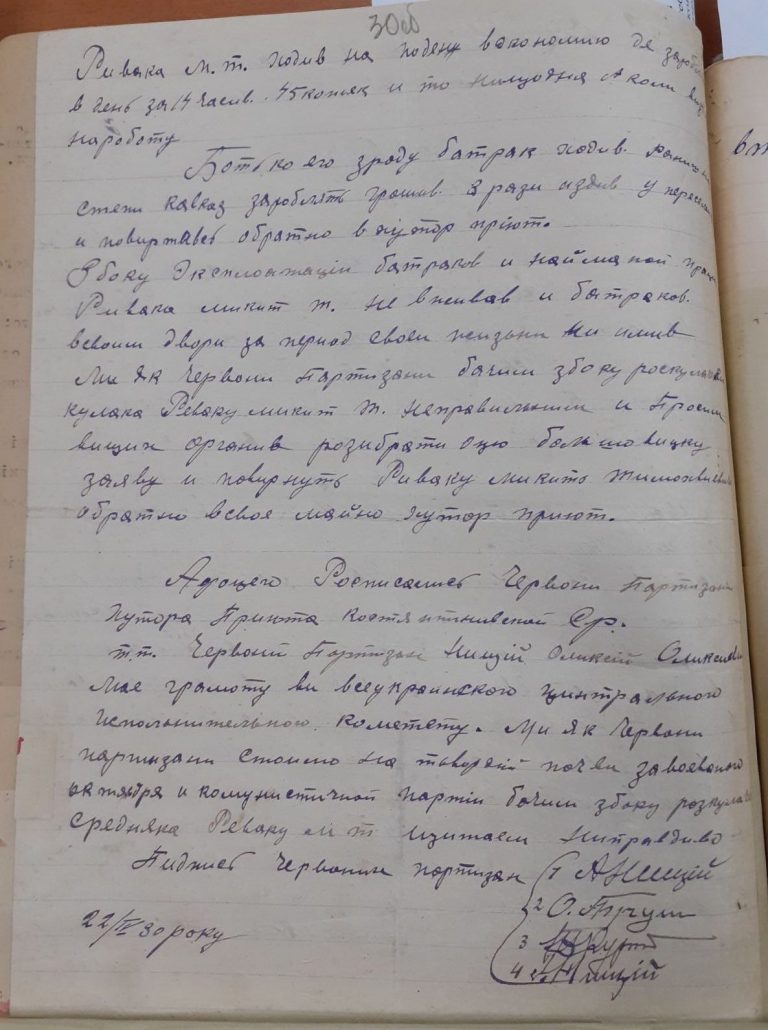 30об
Ривака М. Т. ходив на поденн в економию де зароб
в день за 14 часив. 45 копiяк и то нищодня А коли
нароботу
Ботько его зроду батрак ходив
степи кавказ заробл'ять грошив. 3 рази издив у
и повиртавсь обратно в хутор прiют.
Збоку Эксплоатацiи батраков и найманой
Ривака микит т. не вживав и батраков.
всвоим двори за период своеи жизьни ни имив
Ми як Червони Партизани бачим збоку роскулач
кулака Реваку микит т. неправильним и Просим
вищих органив розибрати оцю большовицку
заяву и повирнуть Риваку микито тимохвиевич
обратно всвое майно хутор приют.
Адоцего Росписались Червони Партизани
хутора Приюта костянтинивской Ср.
т.т. Червоний Партизан Ницiй Олексiй Олексиев
мае грамоту ви всеукраинского центрального
исполнительного кометету. Ми як Червони
партизани стоимо на твердiй почви завоеваного
октября и комунистичной партiи бачим збоку розкулач
средняка Реваку М Т щитаем ниправдиво
Пидпись Червоних партизан 1 А Ницiй
2 О.
3
4 Ницiй
22/IV 30 року